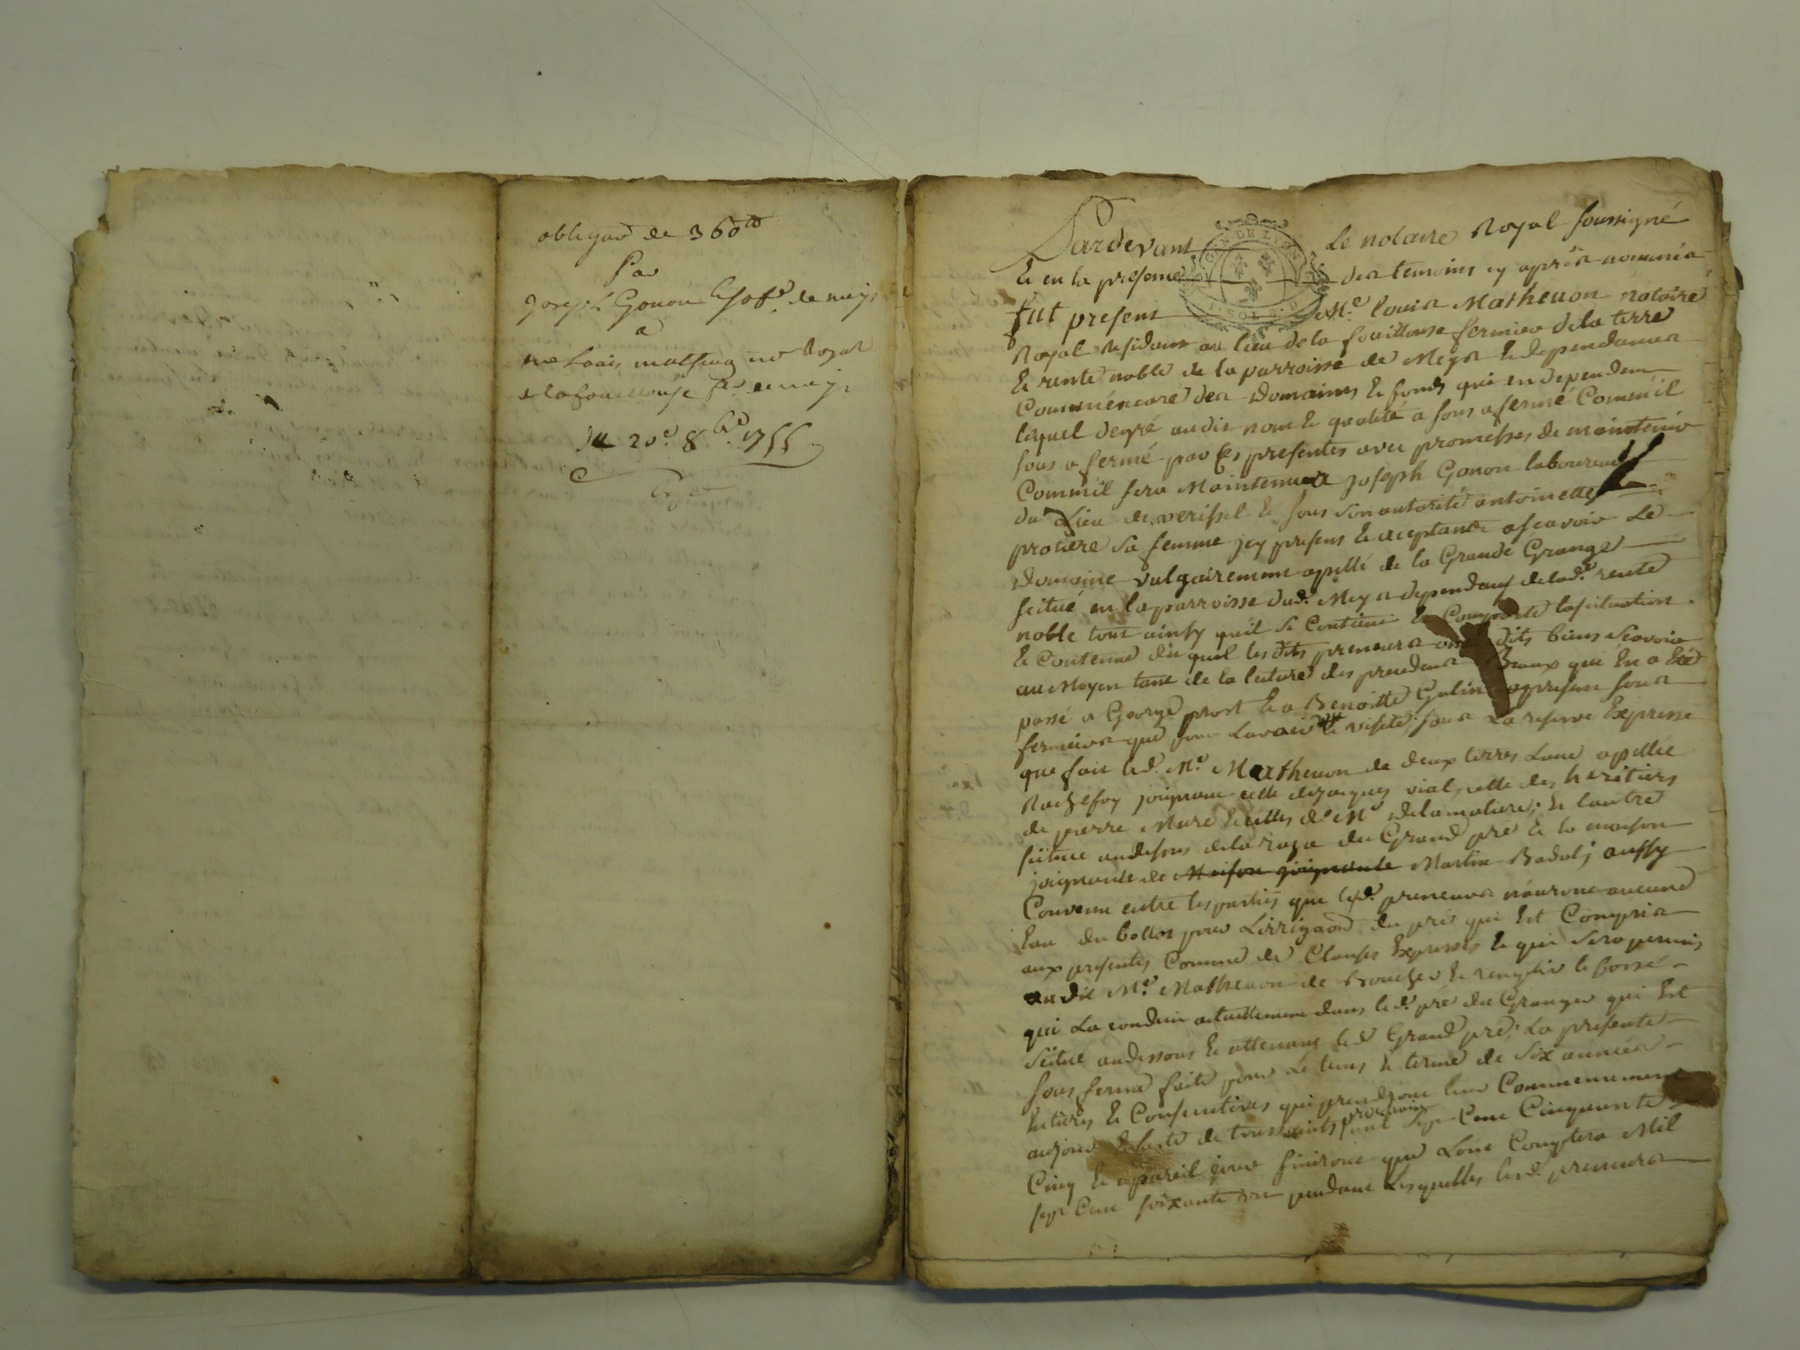 obligaõn de 360 ₶
Par
Joseph Gonon
a
me Louis no Royal
du 20e 8bre 1755
Pardevant Le notaire Royal soussigné
Et en la presence des temoins cy après nommés
fut present Me. Louis Matheuon notaire
Royal residant au lieu de la fouillouse fermier de la terre
Et rente noble de la parroisse de Meys Et dependances
Comm'encore des Domaines Et fonds qui en dependent
lequel degré audit nom Et qualité a sous affermé Comm'il
sous afferme par Ces presentes avec promesses de maintenir
Comm'il sera Maintenu a Joseph Gonon laboureur
du Lieu de Et sous son autorité antoinette
protiere sa femme jcy presens Et aceptants ascavoir Le
Domaine vulgairement apellé de la Grande Grange
scitué en la parroisse dud. Meys dependant de lad. rente
noble tout ainsy quil se Contient Et Comporte la situation
Et Contenue duquel lesdits preneurs ont dits biens scavoir
au Moyen tant de la lecture des precedens Beaux qui En a Eté
passé a George Et a Benoitte apresent sous
fermiers que pour Lavoir visité; sous La reserve Expresse
que fait led. Me. Matheuon de deux terres Lune apellée
joignant celle de jacques vial, celle des heritiers
de pierre Mure Et celles de Me. delamoliere; Et lautre
scituée audessous de la raza du Grand pré Et la maison
joignante de Maison joignante Martin Badol; aussy
Convenu entre les parties que lesd. preneurs n'auront aucune
Eau du pour Lirrigaõn du prés qui Est Compris
aux presentes Comme de Clauses Expresses Et qui sera permis
audit Me. Matheuon de Boucher Et remplir le fossé
qui La conduit actuellement dans led. pré du Granger qui Est
scitué audessous Et attenant led. Grand pré; La presente
sous ferme faite pour Le tems Et terme de six années
Entieres Et Consecutives qui prendront leur Commencement
aujour Et feste de toussaints prochain mil sept Cent Cinquante
Cinq Et apareil jour finiront que Lont Comptera Mil
sept Cent soixante un pendant Lesquelles lesd. preneurs